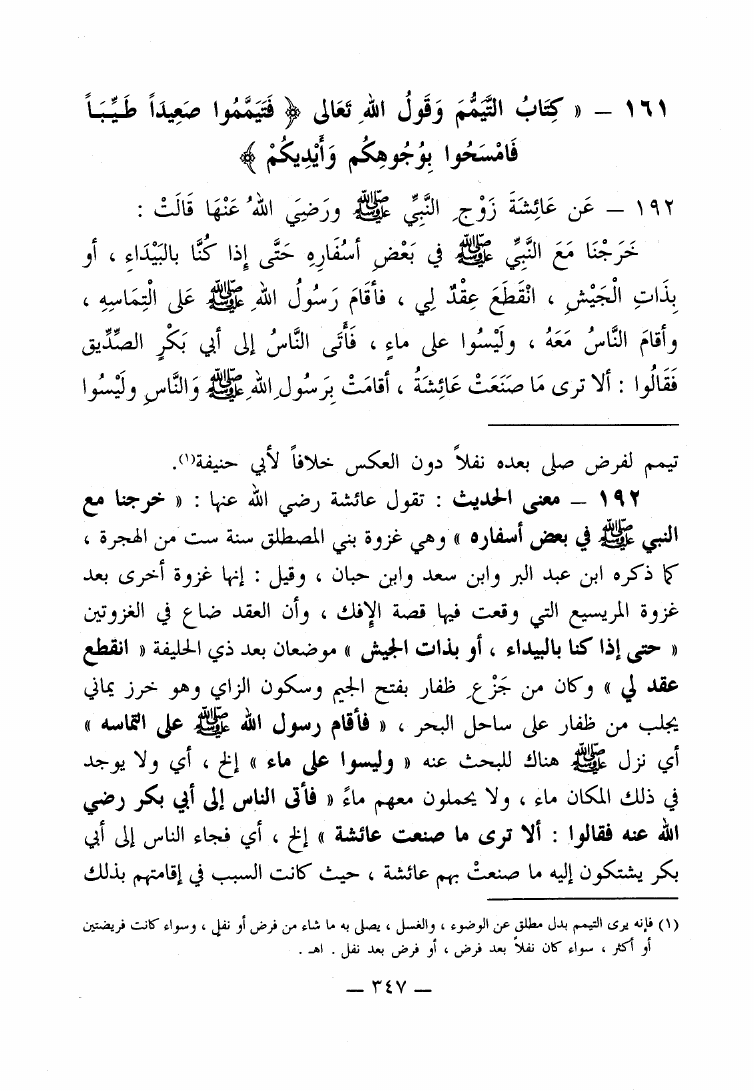 ١٦١ – « كِتَابُ التَّيَمُّمِ وَقَولُ اللهِ تَعَالى ﴿ فَتَيَمَّمُوا صَعِيداً طَـيِّـبَـاً
فَامْسَحُوا بِوُجُوهِكُم وَأَيْدِيكُمْ ﴾
١٩٢ – عَن عَائِشَةَ زَوْجِ النَّبِيِّ ﷺ ورَضِيَ اللهُ عَنْهَا قَالَتْ :
خَرَجْنَا مَعَ النَّبِيِّ ﷺ في بَعْضِ أسْفَارِهِ حَتَّى إِذا كُنَّا بالبَيْدَاءِ ، أو
بِذَاتِ الْجَيْشِ ، انْقَطَعَ عِقْدٌ لِي ، فأقَامَ رَسُولُ اللهِ ﷺ عَلى الْتِمَاسِهِ ،
وأقامَ النَّاسُ مَعَهُ ، ولَيْسُوا على ماءٍ ، فَأَتَى النَّاسُ إلى أبي بَكْرٍ الصِّدِّيق
فَقَالُوا : ألا ترى مَا صَنَعَتْ عَائِشَةُ ، أقامَتْ بِرَسُولِ اللهِ ﷺ وَالنَّاسِ ولَيْسُوا
تيمم لفرض صلى بعده نفلاً دون العكس خلافاً لأبي حنيفة(١).
١٩٢ – معنى الحديث : تقول عائشة رضي الله عنها : « خرجنا مع
النبي ﷺ في بعض أسفاره » وهي غزوة بني المصطلق سنة ست من الهجرة ،
كما ذكره ابن عبد البر وابن سعد وابن حبان ، وقيل : إنها غزوة أخرى بعد
غزوة المريسيع التي وقعت فيها قصة الإفك ، وأن العقد ضاع في الغزوتين
« حتى إذا كنا بالبيداء ، أو بذات الجيش » موضعان بعد ذي الحليفة « انقطع
عقد لي » وكان من جَزْعِ ظفار بفتح الجيم وسكون الزاي وهو خرز يماني
يجلب من ظفار على ساحل البحر ، « فأقام رسول الله ﷺ على التماسه »
أي نزل ﷺ هناك للبحث عنه « وليسوا على ماء » إلخ ، أي ولا يوجد
في ذلك المكان ماء ، ولا يحملون معهم ماءً « فأتى الناس إلى أبي بكر رضي
الله عنه فقالوا : ألا ترى ما صنعت عائشة » إلخ ، أي فجاء الناس إلى أبي
بكر يشتكون إليه ما صنعتْ بهم عائشة ، حيث كانت السبب في إقامتهم بذلك
(١) فإنه يرى التيمم بدل مطلق عن الوضوء ، والغسل ، يصلى به ما شاء من فرض أو نفلٍ ، وسواء كانت فريضتين
أو أكثر ، سواء كان نفلاً بعد فرض ، أو فرض بعد نفل . اهـ .
– ٣٤٧ –